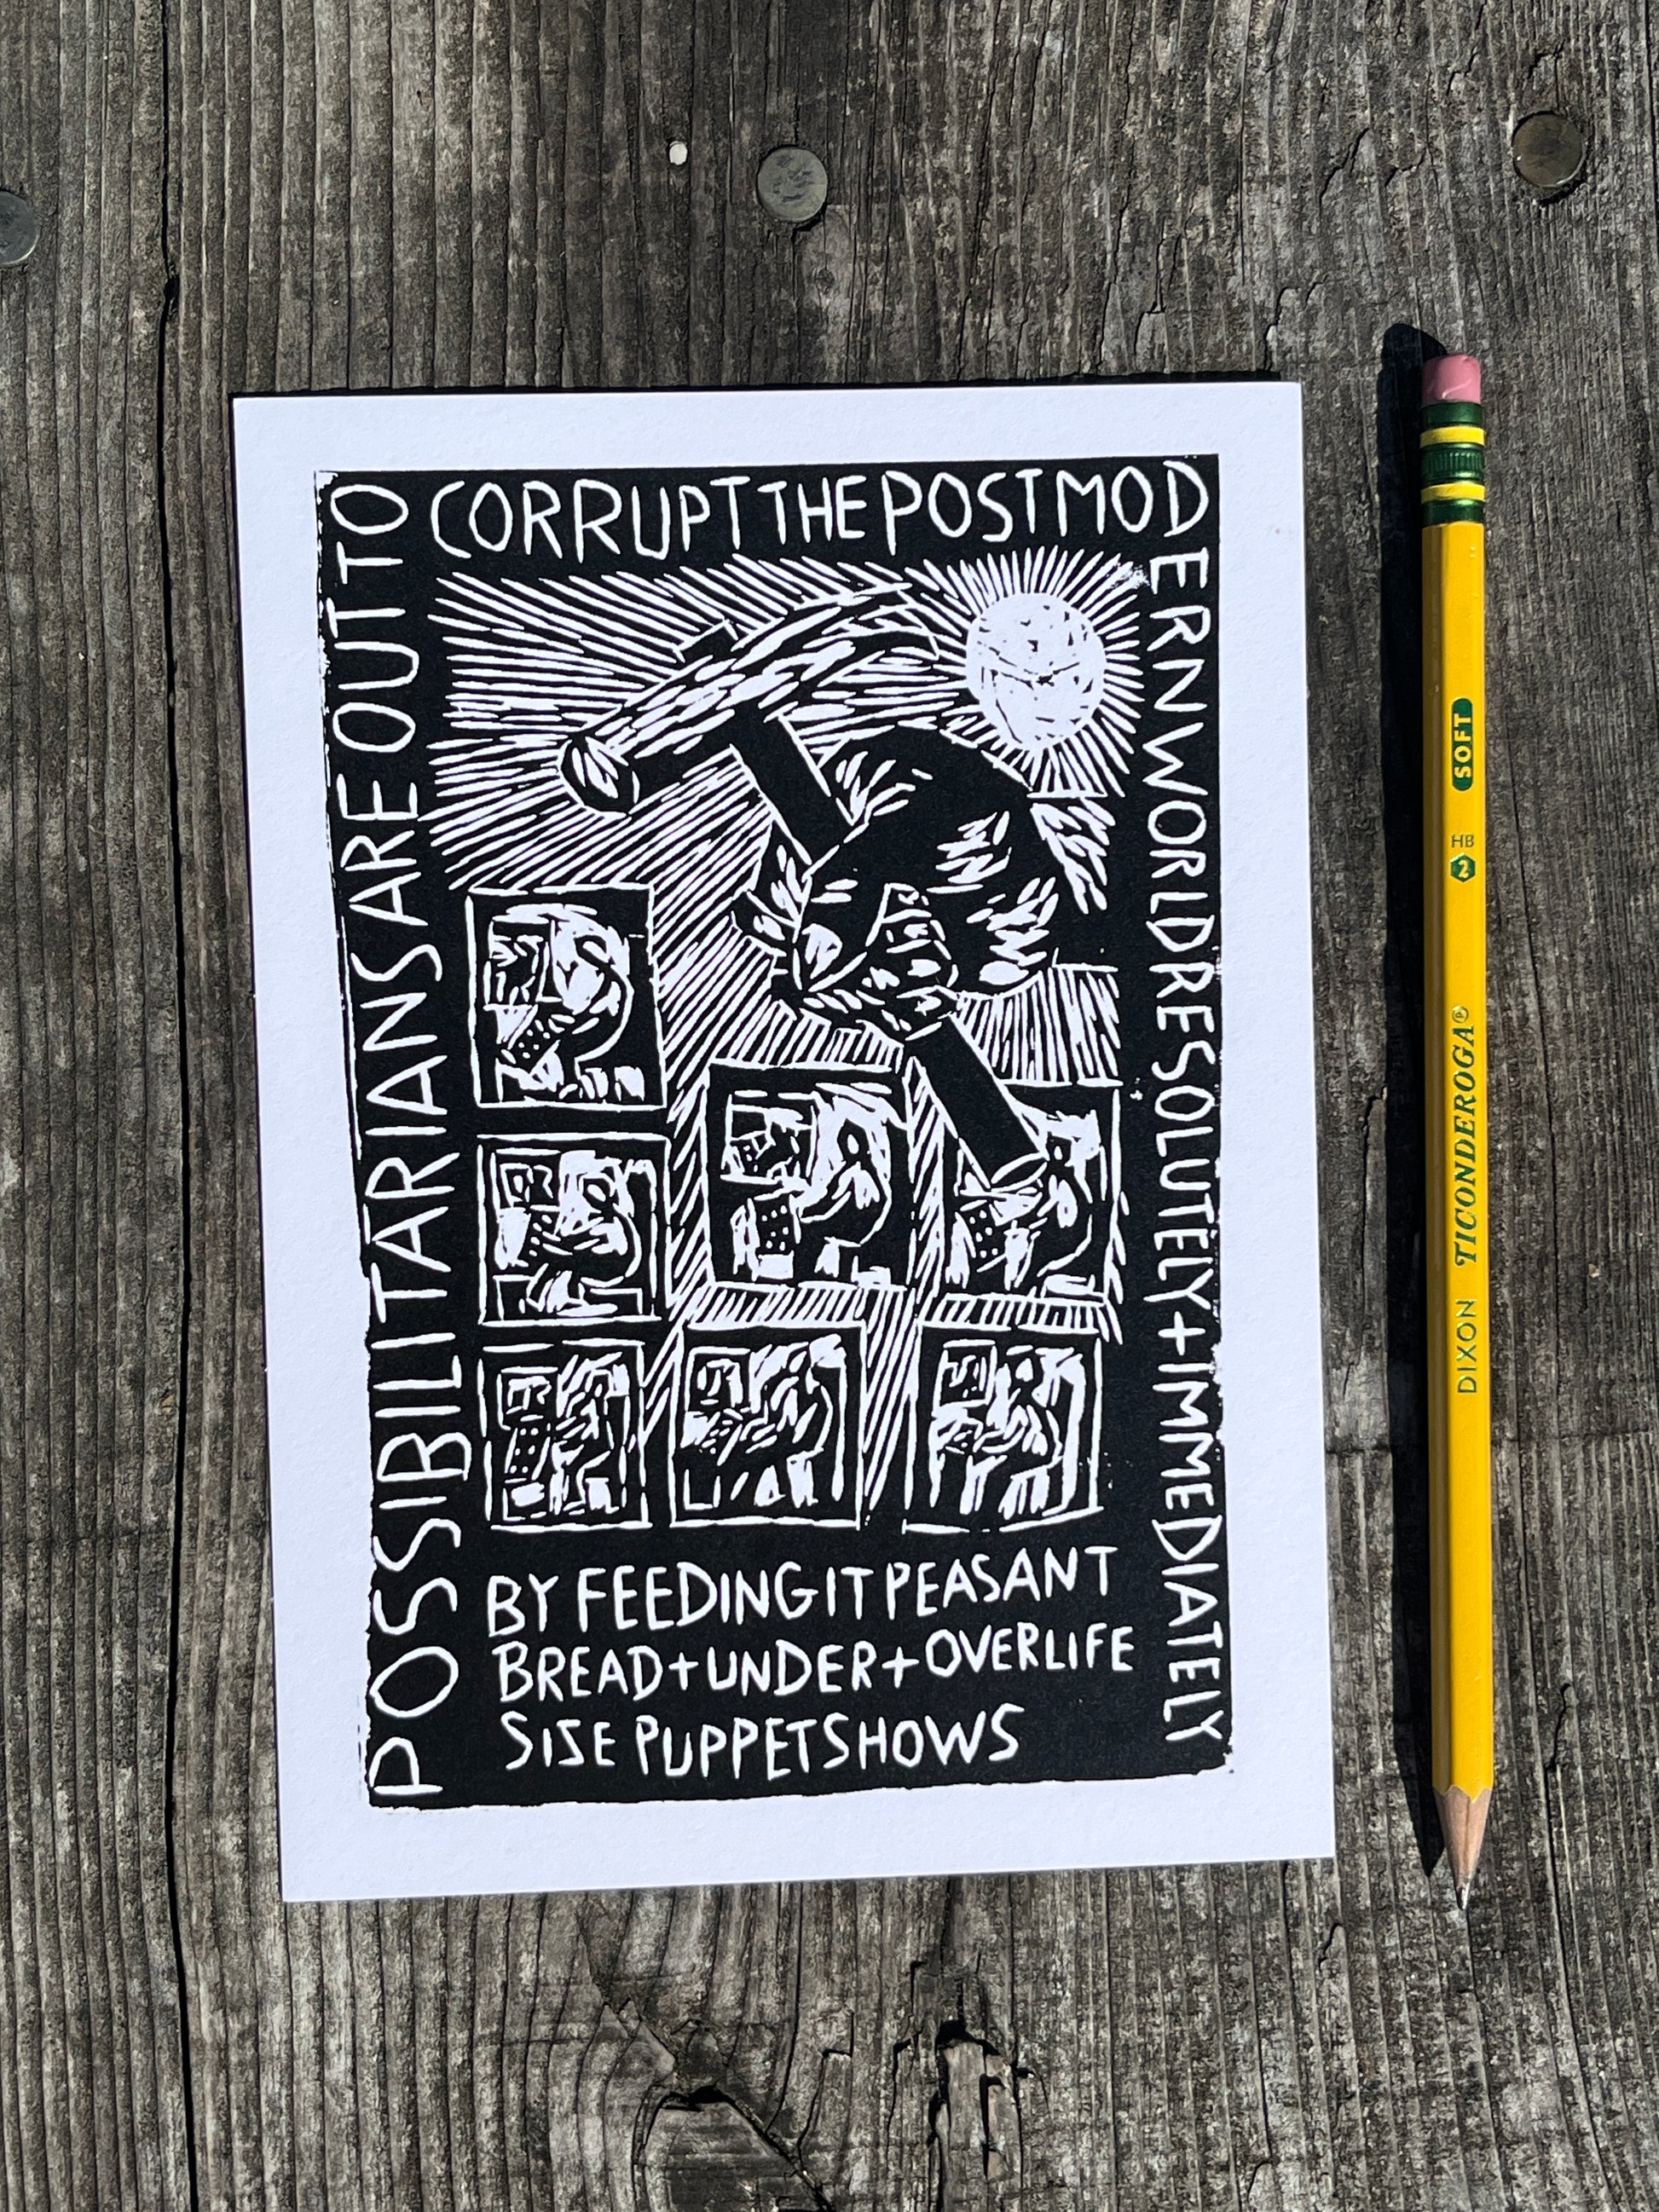 POSSIBILITARIANS ARE OUT TO
CORRUPT THE POSTMOD
ERN WORLD RESOLUTELY + IMMEDIATELY
BY FEEDING IT PEASANT
BREAD + UNDER + OVERLIFE
SIZE PUPPETSHOWS
DIXON TICONDEROGA® HB 2 SOFT